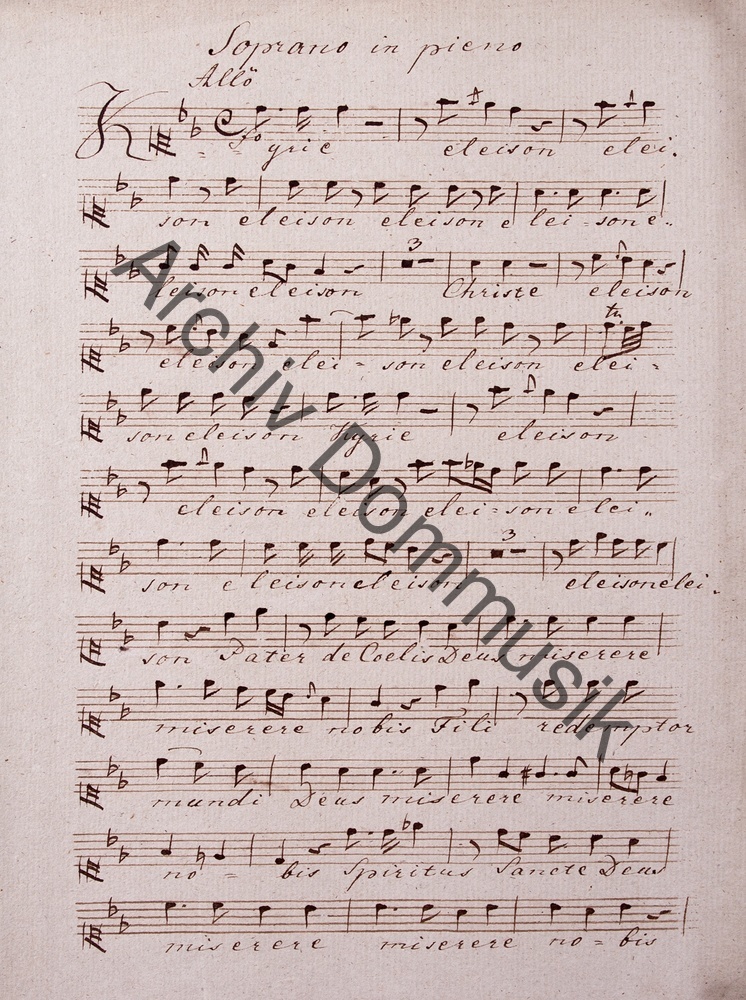 Soprano in pieno
Allo
Kyrie eleison elei.
son eleison eleison e lei - son e..
leison eleison 3 Christe eleison
eleison elei - son eleison elei =
son eleison Kyrie eleison
eleison eleison elei = son elei..
son e leison eleison 3 eleison elei.
son Pater de Coelis Deus miserere
miserere nobis Fili redemptor
mundi Deus miserere miserere
no = bis Spiritus Sancte Deus
miserere miserere no = bis
Archiv Dommusik